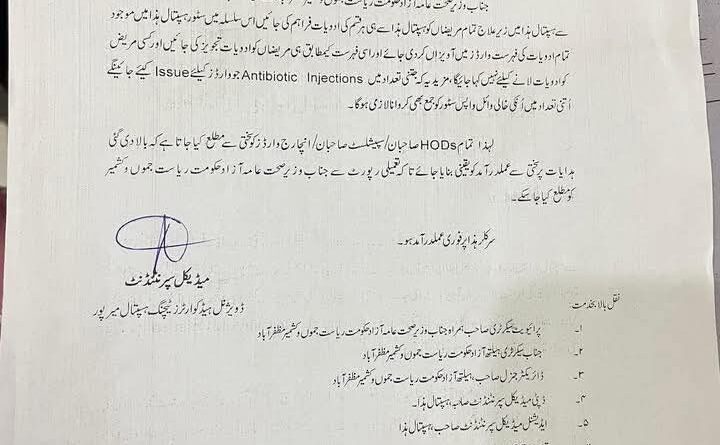 جناب وزیر صحت عامہ آزاد حکومت ریاست جموں و کشمیر
سے ہسپتال ہذا میں زیر علاج تمام مریضاں کو ہسپتال ہذا سے ہی ہر قسم کی ادویات فراہم کی جائیں اس سلسلہ میں سٹور ہسپتال ہذا میں موجود
تمام ادویات کی فہرست وارڈز میں آویزاں کر دی جائے اور اسی فہرست کیمطابق ہی مریضاں کو ادویات تجویز کی جائیں اور کسی مریض
کو ادویات لانے کیلئے نہیں کہا جائیگا، مزید یہ کہ جتنی تعداد میں Antibiotic Injections جو وارڈز کیلئے Issue کیئے جائینگے
اُتنی تعداد میں اُنکی خالی وائل واپس سٹور کو جمع بھی کروانا لازمی ہوگا۔
لہذا تمام HODs صاحبان/سپیشلسٹ صاحبان/انچارج وارڈز کو سختی سے مطلع کیا جاتا ہے کہ بالا دی گئی
ہدایات پر سختی سے عملدرآمد کو یقینی بنایا جائے تاکہ تعمیلی رپورٹ سے جناب وزیر صحت عامہ آزاد حکومت ریاست جموں و کشمیر
کو مطلع کیا جا سکے۔
سرکلر ہذا پر فوری عملدرآمد ہو۔
میڈیکل سپرنٹنڈنٹ
ڈویژنل ہیڈکوارٹرز ٹیچنگ ہسپتال میرپور
نقل بالا بخدمت:
۱۔ پرائیویٹ سیکرٹری صاحب ہمراہ جناب وزیر صحت عامہ آزاد حکومت ریاست جموں و کشمیر مظفرآباد
۲۔ جناب سیکرٹری ہیلتھ آزاد حکومت ریاست جموں و کشمیر مظفرآباد
۳۔ ڈائریکٹر جنرل صاحب، ہیلتھ آزاد حکومت ریاست جموں و کشمیر مظفرآباد
۴۔ ڈپٹی میڈیکل سپرنٹنڈنٹ صاحبہ، ہسپتال ہذا۔
۵۔ ایڈیشنل میڈیکل سپرنٹنڈنٹ صاحب، ہسپتال ہذا